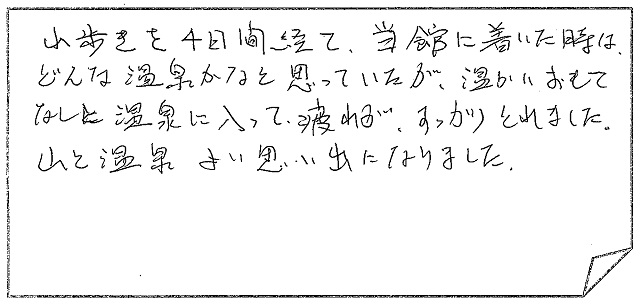 山歩きを4日間経て、当館に着いた時は、
どんな温泉かなと思っていたが、温かいおもて
なしと温泉に入って、疲れが、すっかりとれました。
山と温泉 よい思い出になりました。